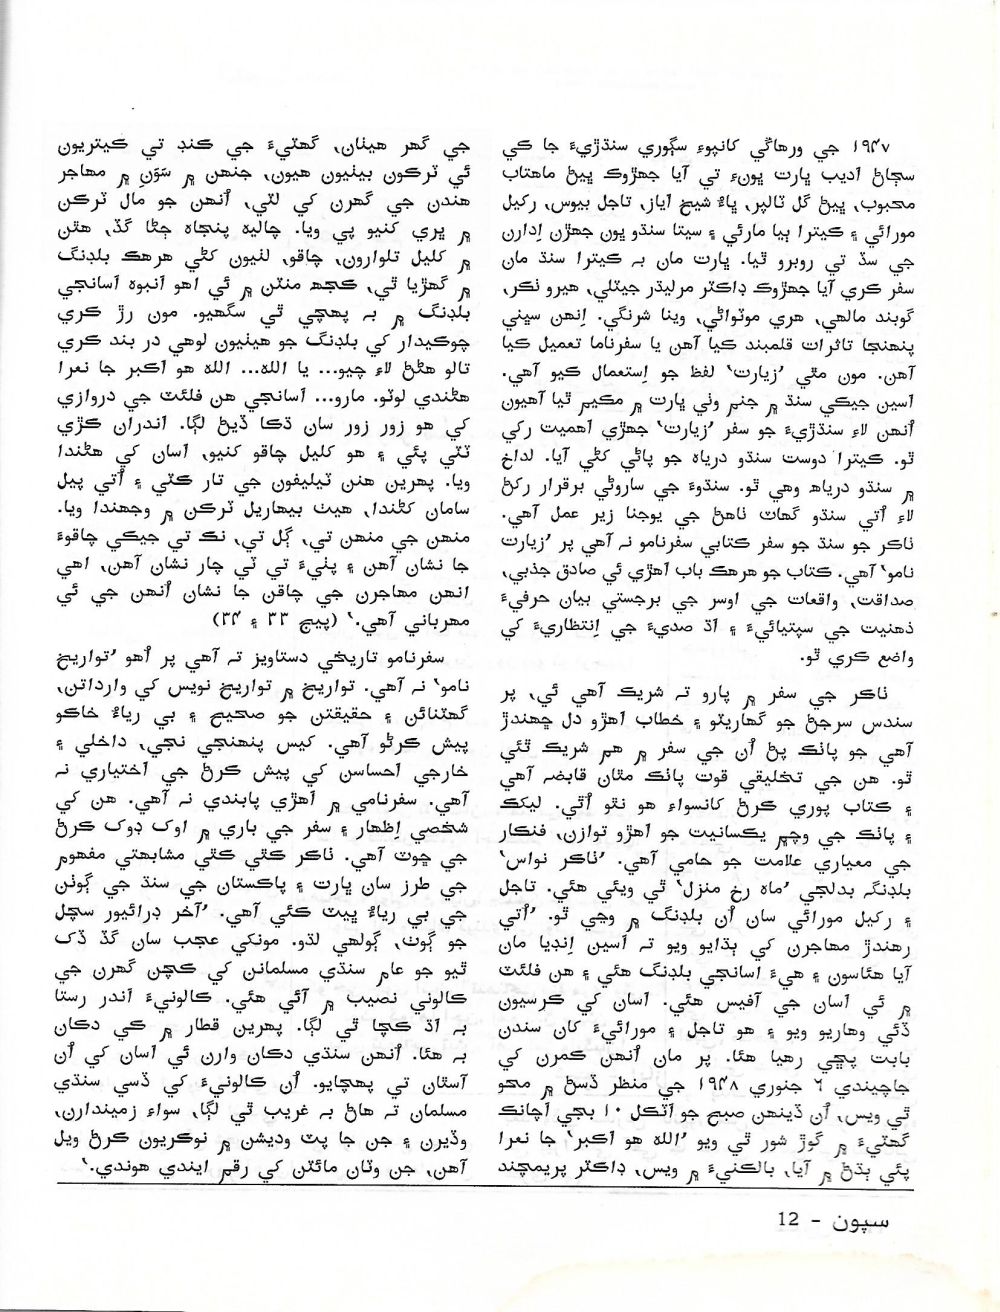 ۱۹۴۷ جي ورهاڱي کانپوءِ سڳوري سنڌڙيءَ جا کي
سڄاڻ اديب ڀارت ڀونءِ تي آيا جهڙوڪ ڀيڻ ماهتاب
محبوب، ڀيڻ گل ٽالپر، ڀاءُ شيخ اياز، تاجل بيوس، رکيل
مورائي ۽ ڪيترا ٻيا مارئي ۽ سيتا سنڌو ڀون جهڙن اِدارن
جي سڏ تي روبرو ٿيا. ڀارت مان بہ ڪيترا سنڌ مان
سفر ڪري آيا جهڙوڪ ڊاڪٽر مرليڌر جيٽلي، هيرو ٺڪر،
گوبند مالهي، هري موٽواڻي، وينا شرنگي. اِنهن سڀني
پنهنجا تاثرات قلمبند ڪيا آهن يا سفرناما تعميل ڪيا
آهن. مون مٿي ’زيارت‘ لفظ جو اِستعمال ڪيو آهي.
اسين جيڪي سنڌ ۾ جنم وٺي ڀارت ۾ مڪيم ٿيا آهيون
اُنهن لاءِ سنڌڙيءَ جو سفر ’زيارت‘ جهڙي اهميت رکي
ٿو. ڪيترا دوست سنڌو درياهہ جو پاڻي کڻي آيا. لداخ
۾ سنڌو درياهہ وهي ٿو. سنڌوءَ جي ساروڻي برقرار رکڻ
لاءِ اُتي سنڌو گهاٽ ٺاهڻ جي يوجنا زير عمل آهي.
ٺاڪر جو سنڌ جو سفر ڪتابي سفرنامو نہ آهي پر ’زيارت
نامو‘ آهي. ڪتاب جو هرهڪ باب اهڙي ئي صادق جذبي،
صداقت، واقعات جي اوسر جي برجستي بيان حرفيءَ
ذهنيت جي سپتيائيءَ ۽ اڌ صديءَ جي اِنتظاريءَ کي
واضع ڪري ٿو.
ٺاڪر جي سفر ۾ پارو تہ شريڪ آهي ئي، پر
سندس سرجڻ جو گهاريٽو ۽ خطاب اهڙو دل ڇهندڙ
آهي جو پاٺڪ پڻ اُن جي سفر ۾ هم شريڪ ٿئي
ٿو. هن جي تخليقي قوت پاٺڪ مٿان قابضہ آهي
۽ ڪتاب پوري ڪرڻ کانسواءِ هو نٿو اُٿي. ليکڪ
۽ پاٺڪ جي وچ۾ يڪسانيت جو اهڙو توازن، فنڪار
جي معياري علامت جو حامي آهي. ’ٺاڪر نواس‘
بلڊنگہ بدلجي ’ماهہ رخ منزل‘ ٿي ويئي هئي. تاجل
۽ رکيل مورائي سان اُن بلڊنگ ۾ وڃي ٿو. ’اُتي
رهندڙ مهاجرن کي ٻڌايو ويو تہ اسين اِنڊيا مان
آيا هئاسون ۽ هيءَ اسانجي بلڊنگ هئي ۽ هن فلئٽ
۾ ئي اسان جي آفيس هئي. اسان کي ڪرسيون
ڏئي وهاريو ويو ۽ هو تاجل ۽ مورائيءَ کان سندن
بابت پڇي رهيا هئا. پر مان اُنهن ڪمرن کي
جاچيندي ٦ جنوري ۱۹۴۸ جي منظر ڏسڻ ۾ محو
ٿي ويس. اُن ڏينهن صبح جو اٽڪل ۱۰ بجي اچانڪ
گهٽيءَ ۾ گوڙ شور ٿي ويو ’الله هو اڪبر‘ جا نعرا
پئي ٻڌڻ ۾ آيا. بالڪنيءَ ۾ ويس، ڊاڪٽر پريمچند
جي گهر هيٺان، گهٽيءَ جي ڪنڊ تي ڪيتريون
ئي ٽرڪون بيٺيون هيون، جنهن ۾ سَوَن ۾ مهاجر
هندن جي گهرن کي لٽي، اُنهن جو مال ٽرڪن
۾ ڀري کنيو پي ويا. چاليهہ پنجاهہ ڄڻا گڏ، هٿن
۾ کليل تلوارون، چاقو، لٺيون کڻي هرهڪ بلڊنگ
۾ گهڙيا ٿي، ڪجهہ منٽن ۾ ئي اهو اَنبوهہ اسانجي
بلڊنگ ۾ بہ پهچي ٿي سگهيو. مون رڙ ڪري
چوڪيدار کي بلڊنگ جو هيٺيون لوهي در بند ڪري
تالو هڻڻ لاءِ چيو... يا الله... الله هو اڪبر جا نعرا
هڻندي لوٽو. مارو... اسانجي هن فلئٽ جي دروازي
کي هو زور زور سان ڌڪا ڏيڻ لڳا. اندران ڪڙي
ٽٽي پئي ۽ هو کليل چاقو کنيو، اسان کي هڻندا
ويا. پهرين هنن ٽيليفون جي تار ڪٽي ۽ اُتي پيل
سامان کڻندا، هيٺ بيهاريل ٽرڪن ۾ وجهندا ويا.
منهن جي منهن تي، ڳل تي، نڪ تي جيڪي چاقوءَ
جا نشان آهن ۽ پٺيءَ تي ٽي چار نشان آهن، اهي
اُنهن مهاجرن جي چاقن جا نشان اُنهن جي ئي
مهرباني آهي.‘ (پيج ۳۳ ۽ ۳۴)
سفرنامو تاريخي دستاويز تہ آهي پر اُهو ’تواريخ
نامو‘ نہ آهي. تواريخ ۾ تواريخ نويس کي وارداتن،
گهٽنائن ۽ حقيقتن جو صحيح ۽ بي رياءُ خاڪو
پيش ڪرڻو آهي. کيس پنهنجي نجي، داخلي ۽
خارجي احساسن کي پيش ڪرڻ جي اختياري نہ
آهي. سفرنامي ۾ اهڙي پابندي نہ آهي. هن کي
شخصي اِظهار ۽ سفر جي باري ۾ اوڪ ڊوڪ ڪرڻ
جي ڇوٽ آهي. ٺاڪر ڪٿي ڪٿي مشابهتي مفهوم
جي طرز سان ڀارت ۽ پاڪستان جي سنڌ جي ڳوٺن
جي بي رياءُ ڀيٽ ڪئي آهي. ’آخر ڊرائيور سچل
جو ڳوٺ، ڳولهي لڌو. مونکي عجب سان گڏ ڏک
ٿيو جو عام سنڌي مسلمانن کي ڪچن گهرن جي
ڪالوني نصيب ۾ آئي هئي. ڪالونيءَ اندر رستا
بہ اڌ ڪچا ٿي لڳا. پهرين قطار ۾ کي دڪان
بہ هئا. اُنهن سنڌي دڪان وارن ئي اسان کي اُن
آستان تي پهچايو. اُن ڪالونيءَ کي ڏسي سنڌي
مسلمان تہ هاڻ بہ غريب ٿي لڳا، سواءِ زميندارن،
وڏيرن ۽ جن جا پٽ وديشن ۾ نوڪريون ڪرڻ ويل
آهن، جن وٽان مائٽن کي رقم ايندي هوندي.‘
سپون - 12